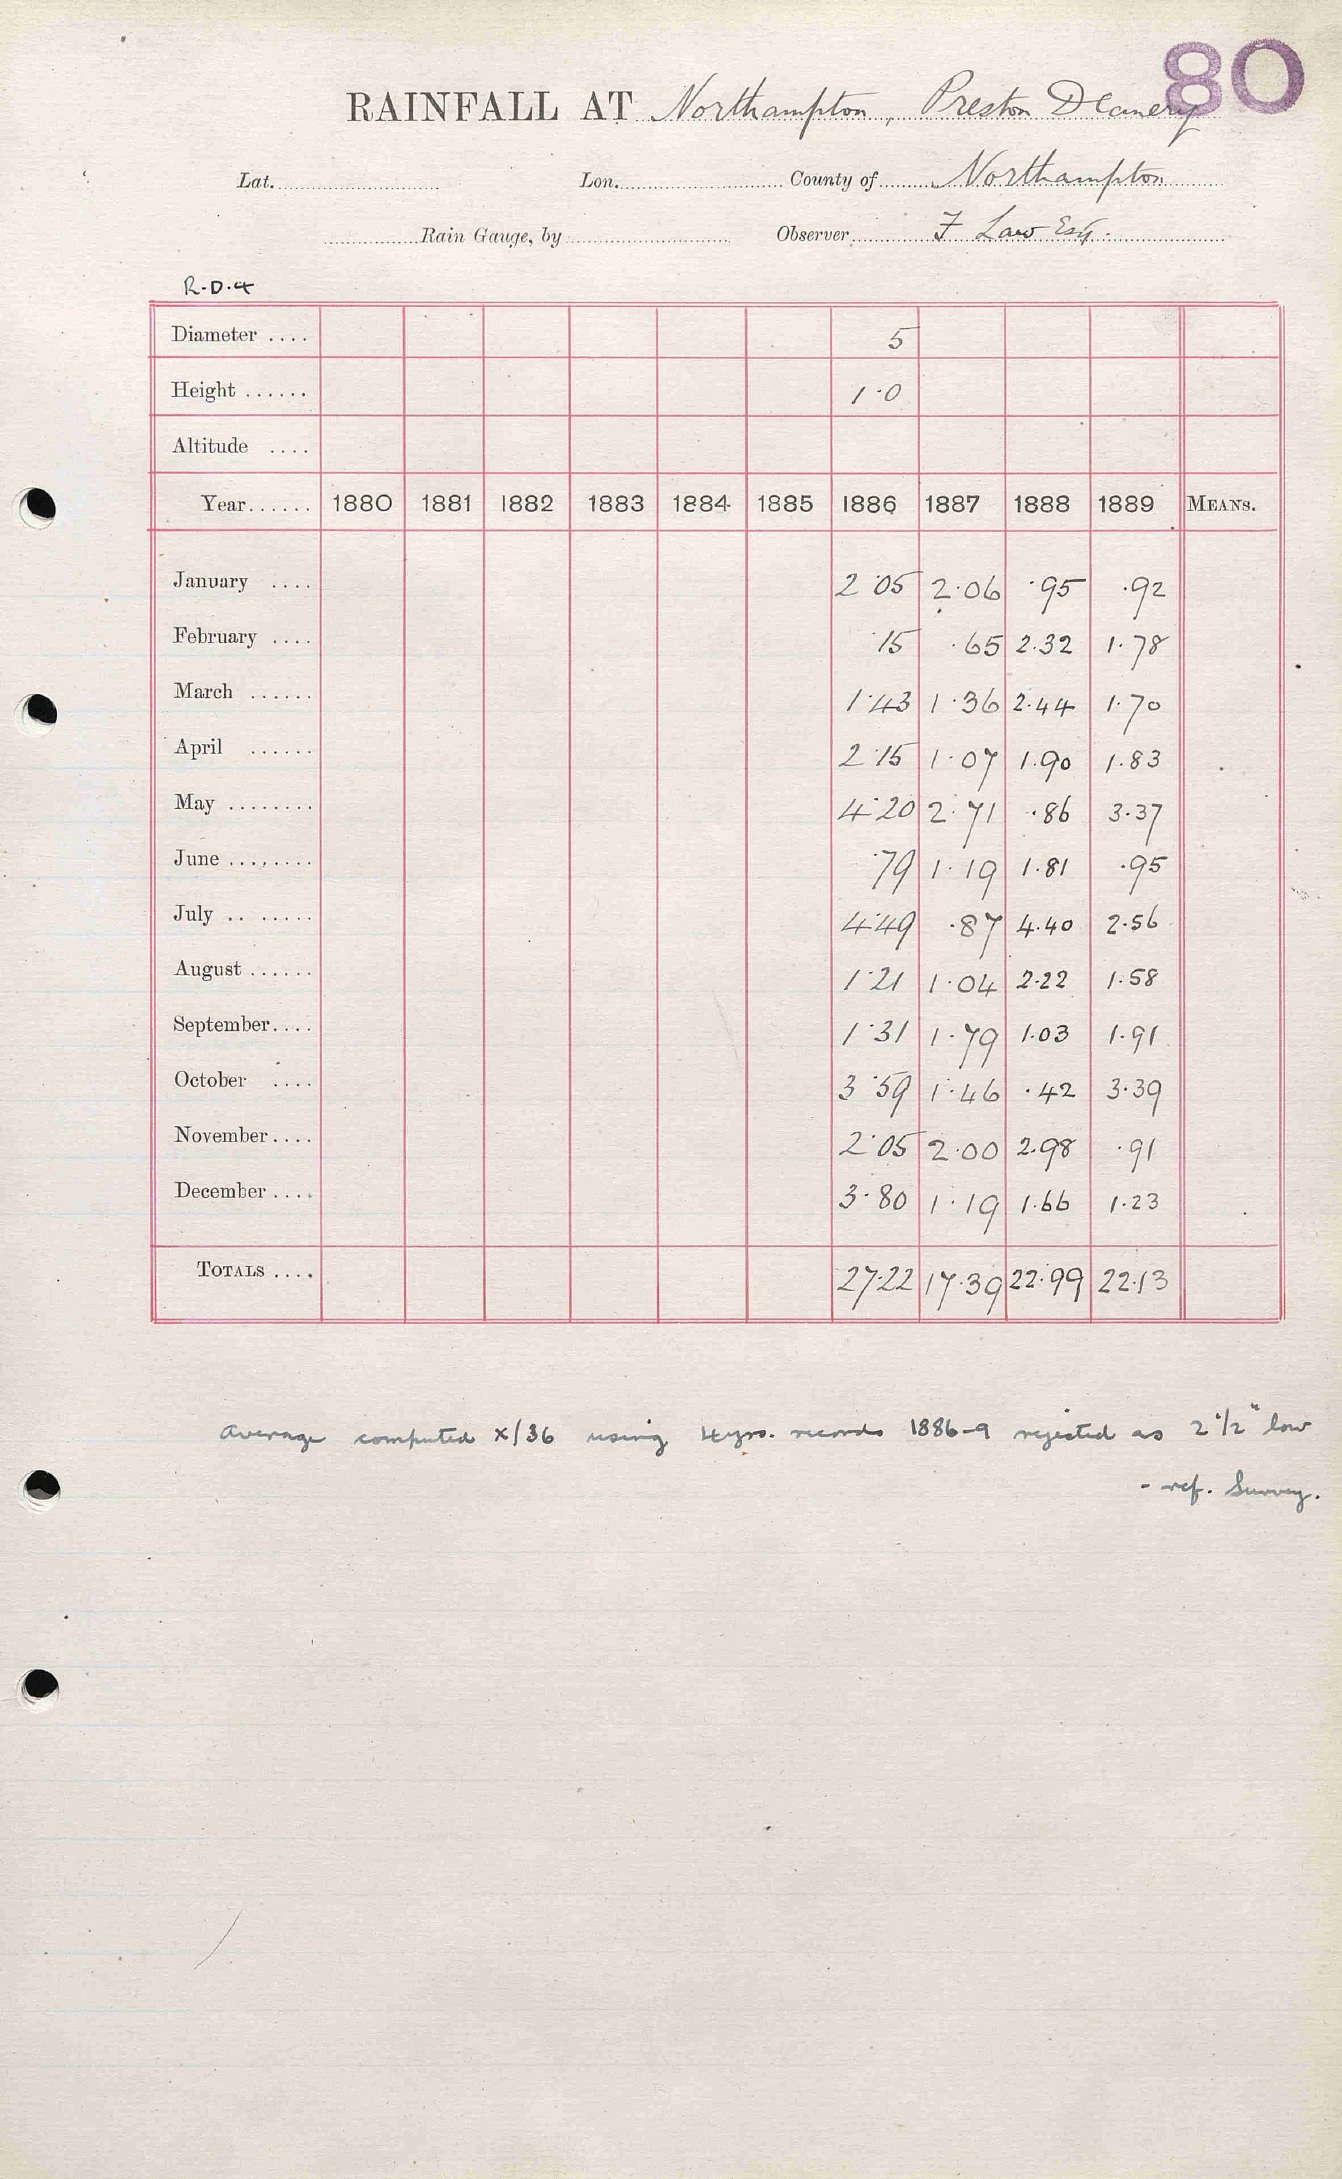 80
RAINFALL AT Northampton, Preston Deanery
Lat. Lon. County of Northampton
Rain Gauge, by Observer F Law Esq.
R.D.4
Diameter .... 5
Height ...... 1·0
Altitude ....
Year...... 1880 1881 1882 1883 1884 1885 1886 1887 1888 1889 MEANS.
January .... 2·05 2·06 ·95 ·92
February .... ·15 ·65 2·32 1·78
March ...... 1·43 1·36 2·44 1·70
April ...... 2·15 1·07 1·90 1·83
May ........ 4·20 2·71 ·86 3·37
June ........ ·79 1·19 1·81 ·95
July .. ..... 4·49 ·87 4·40 2·56
August ...... 1·21 1·04 2·22 1·58
September.... 1·31 1·79 1·03 1·91
October .... 3·59 1·46 ·42 3·39
November.... 2·05 2·00 2·98 ·91
December .... 3·80 1·19 1·66 1·23
TOTALS .... 27·22 17·39 22·99 22·13
Average computed x/36 using 4yrs. records 1886-9 rejected as 2 1/2" low
- ref. Survey.